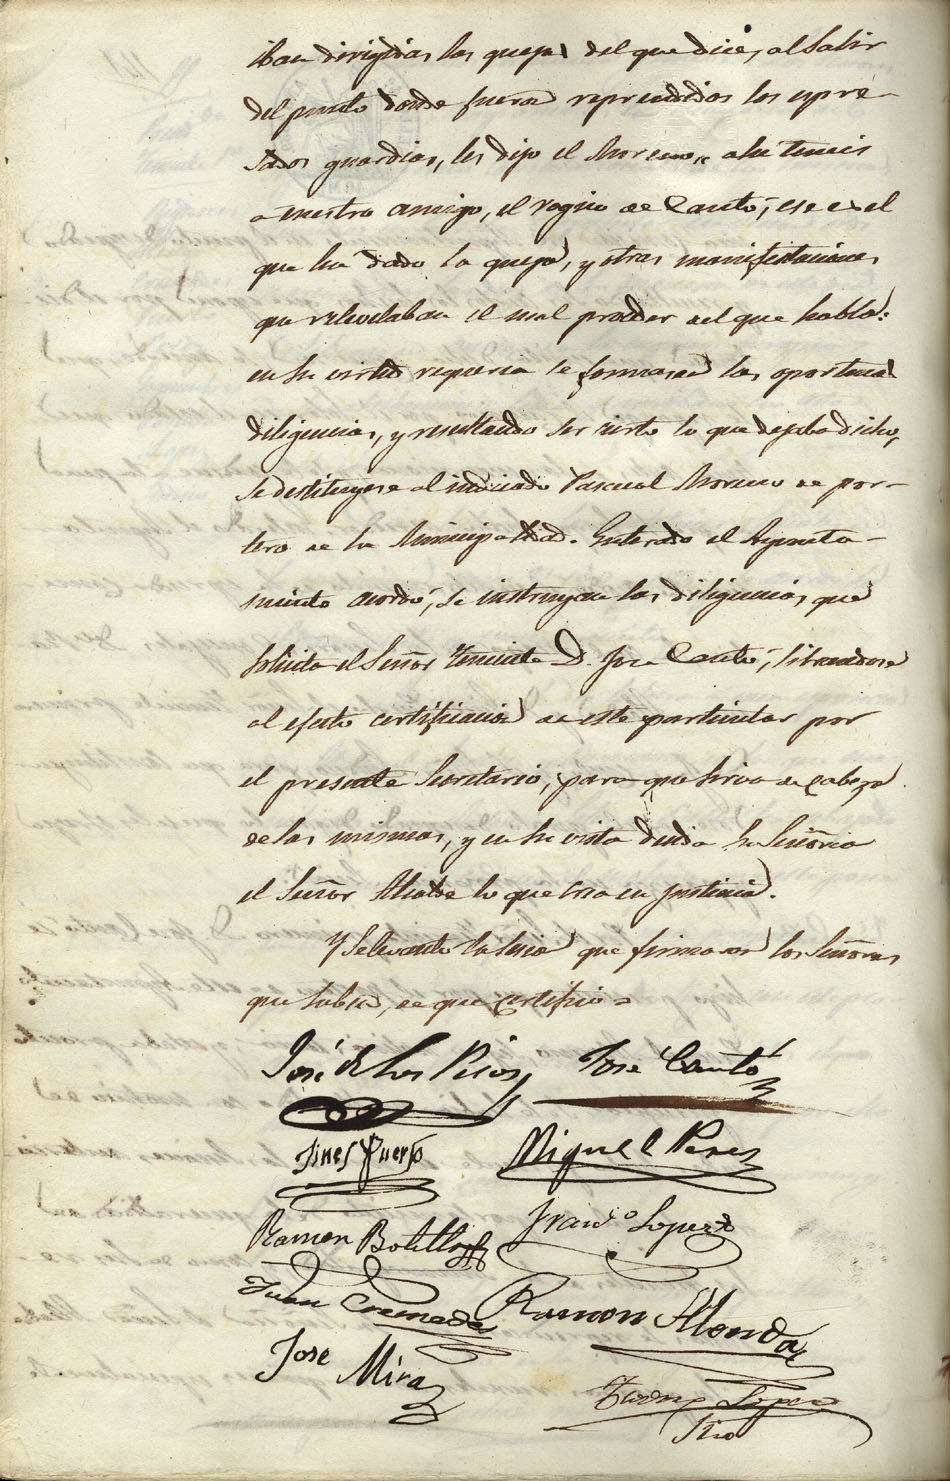 iban dirigidas las quejas del que dice, al salir
del punto donde fueron reprendidos los espre-
sados guardias, les dijo el Moreno, ahi teneis
a nuestro amigo, el rogiio de Cantó, ese es el
que ha dado la queja, y otras manifestaciones
que revelaban el mal proceder del que habla:
en su virtud requeria se formasen las oportunas
diligencias, y resultando ser cierto lo que dejaba dicho,
se destituyese al indiciado Pascual Moreno de por-
tero de la Municipalidad. Enterado el Ayunta-
miento acordó, se instruyan las diligencias que
solicita el Señor Teniente D. Jose Cantó, librandose
al efecto certificacion de este particular por
el presente Secretario, para que sirva de cabeza
de las mismas, y en su vista decida su Señoria
el Señor Alcalde lo que crea en justicia.
Y se levantó la sesion que firmaron los Señores
que saben, de que certifico =
José de los Picos Jose Cantó
Jines Puerto Miguel Perez
Ramon Botella Franco Lopez
Juan Cremades Ramon Alenda
Jose Mira
Lopez
Srio